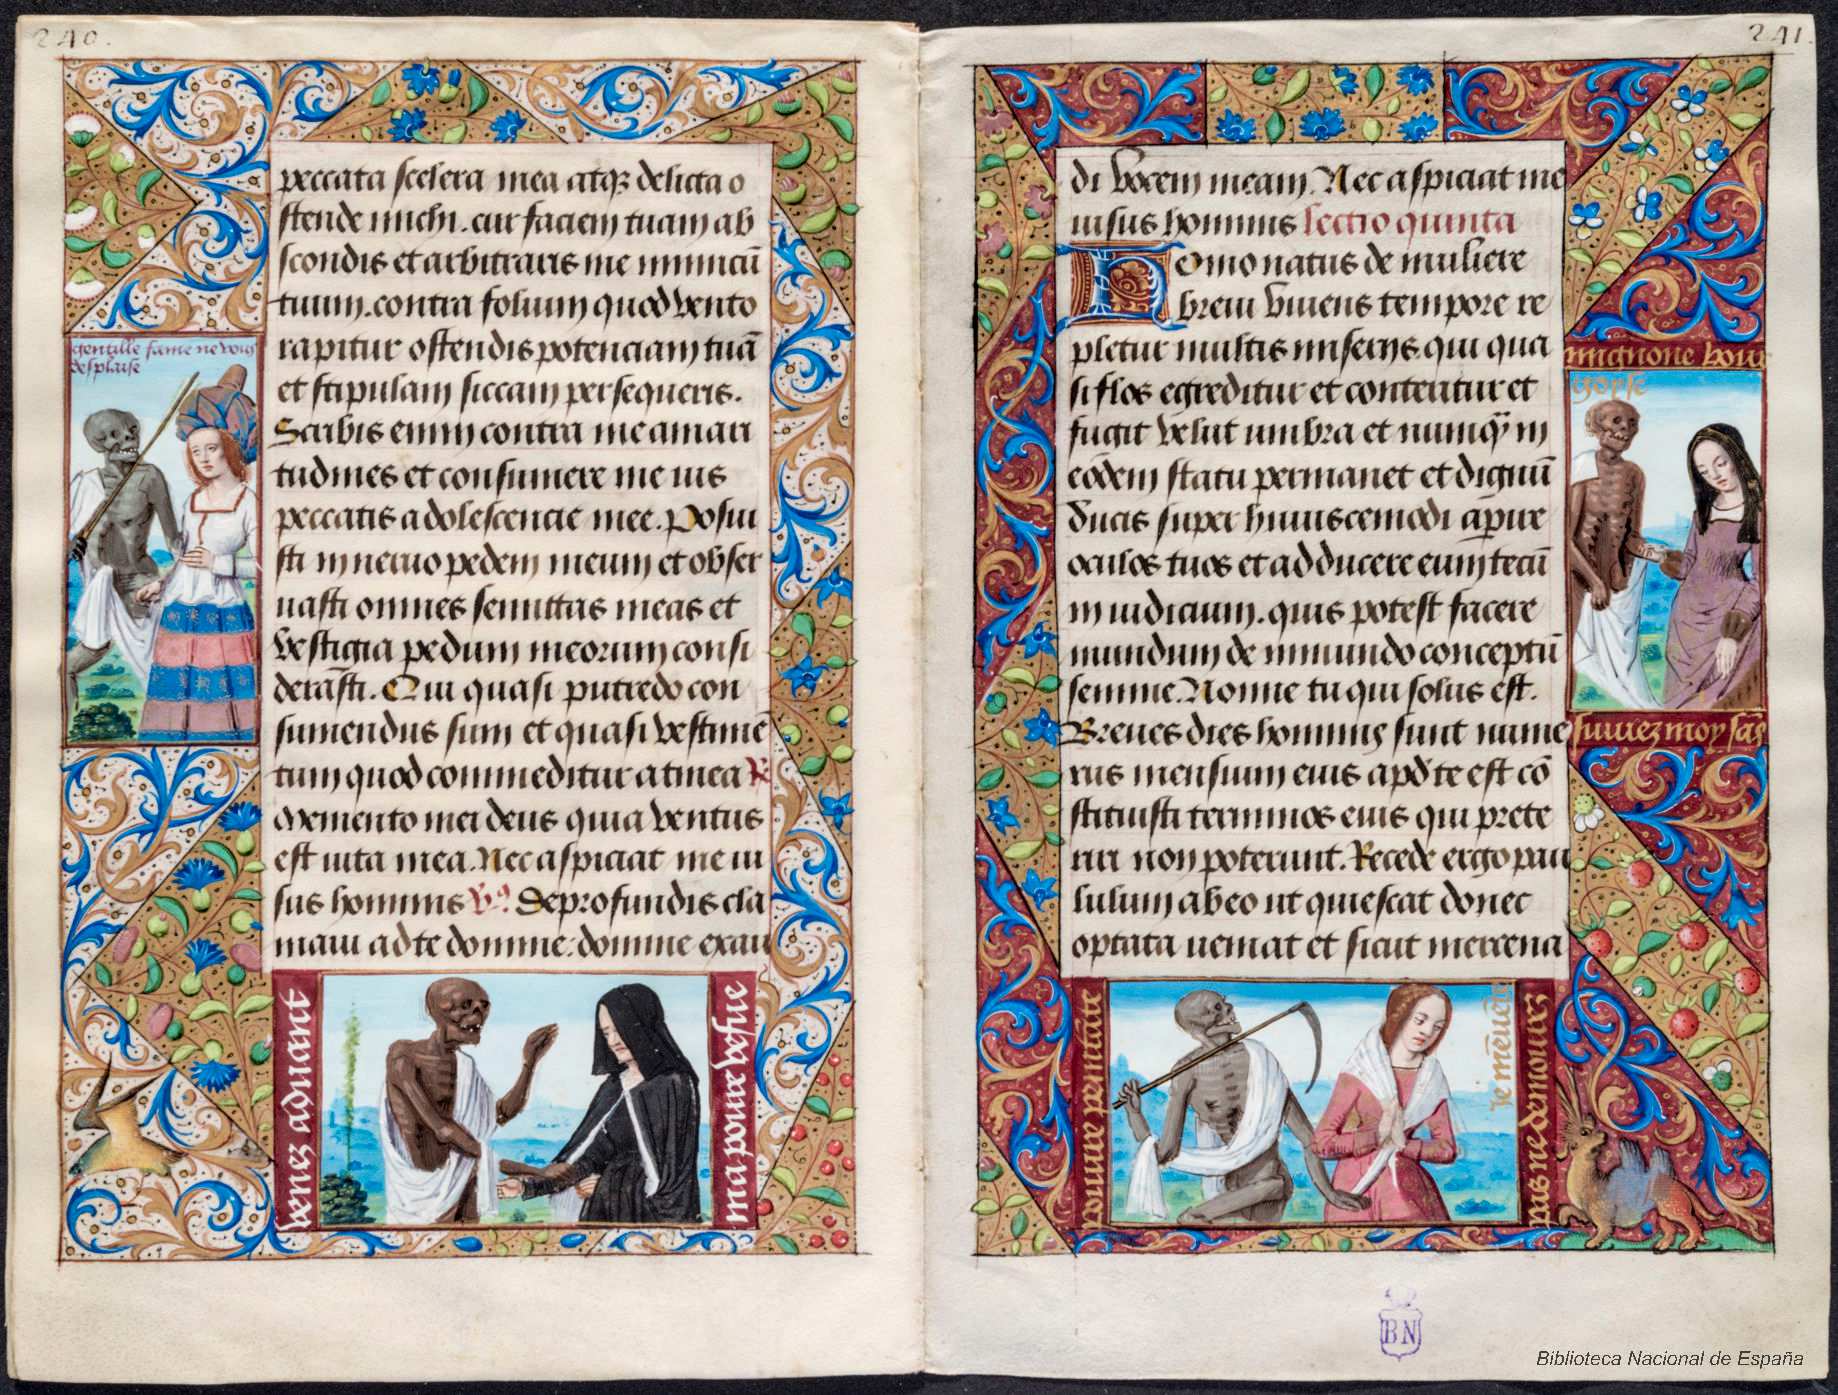 240.
peccata scelera mea atqꝫ delicta o
stende michi. cur faciem tuam ab
scondis et arbitraris me inimicū
tuum. contra folium quod vento
rapitur ostendis potenciam tuā
et stipulam siccam persequeris.
Scribis enim contra me amari
tudines et consumere me uis
peccatis adolescencie mee. Posui
sti in neruo pedem meum et obser
uasti omnes semittas meas et
vestigia pedum meorum consi
derasti. Qui quasi putredo con
sumendus sum et quasi vestimē
tum quod commeditur a tinea R
Memento mei deus quia ventus
est uita mea. Nec aspiciat me ui
sus hominis Vꝰ. Deprofundis cla
maui ad te domine: domine exau
gentille fame ne vous
desplaise
venez aduant
ma poure vesue
241.
di vocem meam. Nec aspiciat me
uisus hominis lectio quinta
Homo natus de muliere
breui viuens tempore re
pletur multis miseriis. qui qua
si flos egreditur et conteritur et
fugit velut umbra et numq̄ in
eodem statu permanet et dignū
ducis super huiuscemodi aperire
oculos tuos et adducere eum tecū
in iudicium. quis potest facere
mundum de inmundo conceptū
semine. Nonne tu qui solus est.
Breues dies hominis sunt nume
rus mensium eius apd te est cō
stituisti terminos eius qui prete
riri non poterunt. Recede ergo pau
lulum ab eo ut quiescat donec
optata ueniat et sicut mercena
mignone bour
gorse
suiuez moy sās
pouure
je
pas ne demourez
BN
Biblioteca Nacional de España